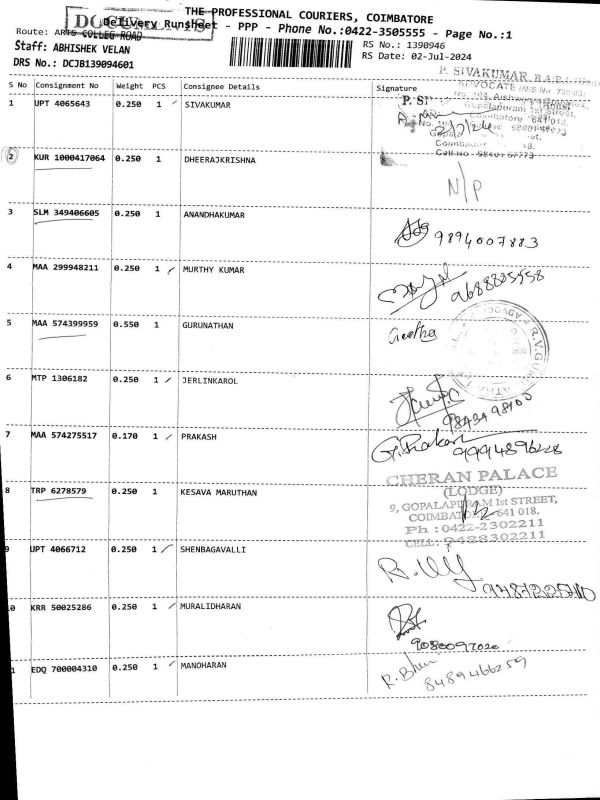 THE PROFESSIONAL COURIERS, COIMBATORE
DOCUMENTS
Delivery Runsheet - PPP - Phone No.:0422-3505555 - Page No.:1
Route: ARTS COLLEG ROAD
RS No.: 1390946
Staff: ABHISHEK VELAN
RS Date: 02-Jul-2024
DRS No.: DCJB139094601
P. SIVAKUMAR, B.A.B.L.
S No Consignment No Weight PCS Consignee Details Signature
ADVOCATE
1 UPT 4065643 0.250 1 SIVAKUMAR
Gopalapuram 1st Street,
Coimbatore 641 018.
2/7/24
2 KUR 1000417064 0.250 1 DHEERAJKRISHNA
N/P
3 SLM 349406605 0.250 1 ANANDHAKUMAR
9894007883
4 MAA 299948211 0.250 1 MURTHY KUMAR
9688835558
5 MAA 574399959 0.550 1 GURUNATHAN
Geetha
ADVOCATE
R.V.GURU
6 MTP 1306182 0.250 1 JERLINKAROL
9843498103
7 MAA 574275517 0.170 1 PRAKASH
G.Prakash
9994896228
8 TRP 6278579 0.250 1 KESAVA MARUTHAN
CHERAN PALACE
(LODGE)
9, GOPALAPURAM Ist STREET,
COIMBATORE 641 018.
Ph : 0422-2302211
CELL: 9488302211
9 UPT 4066712 0.250 1 SHENBAGAVALLI
10 KRR 50025286 0.250 1 MURALIDHARAN
9080097020
11 EDQ 700004310 0.250 1 MANOHARAN
8489466259